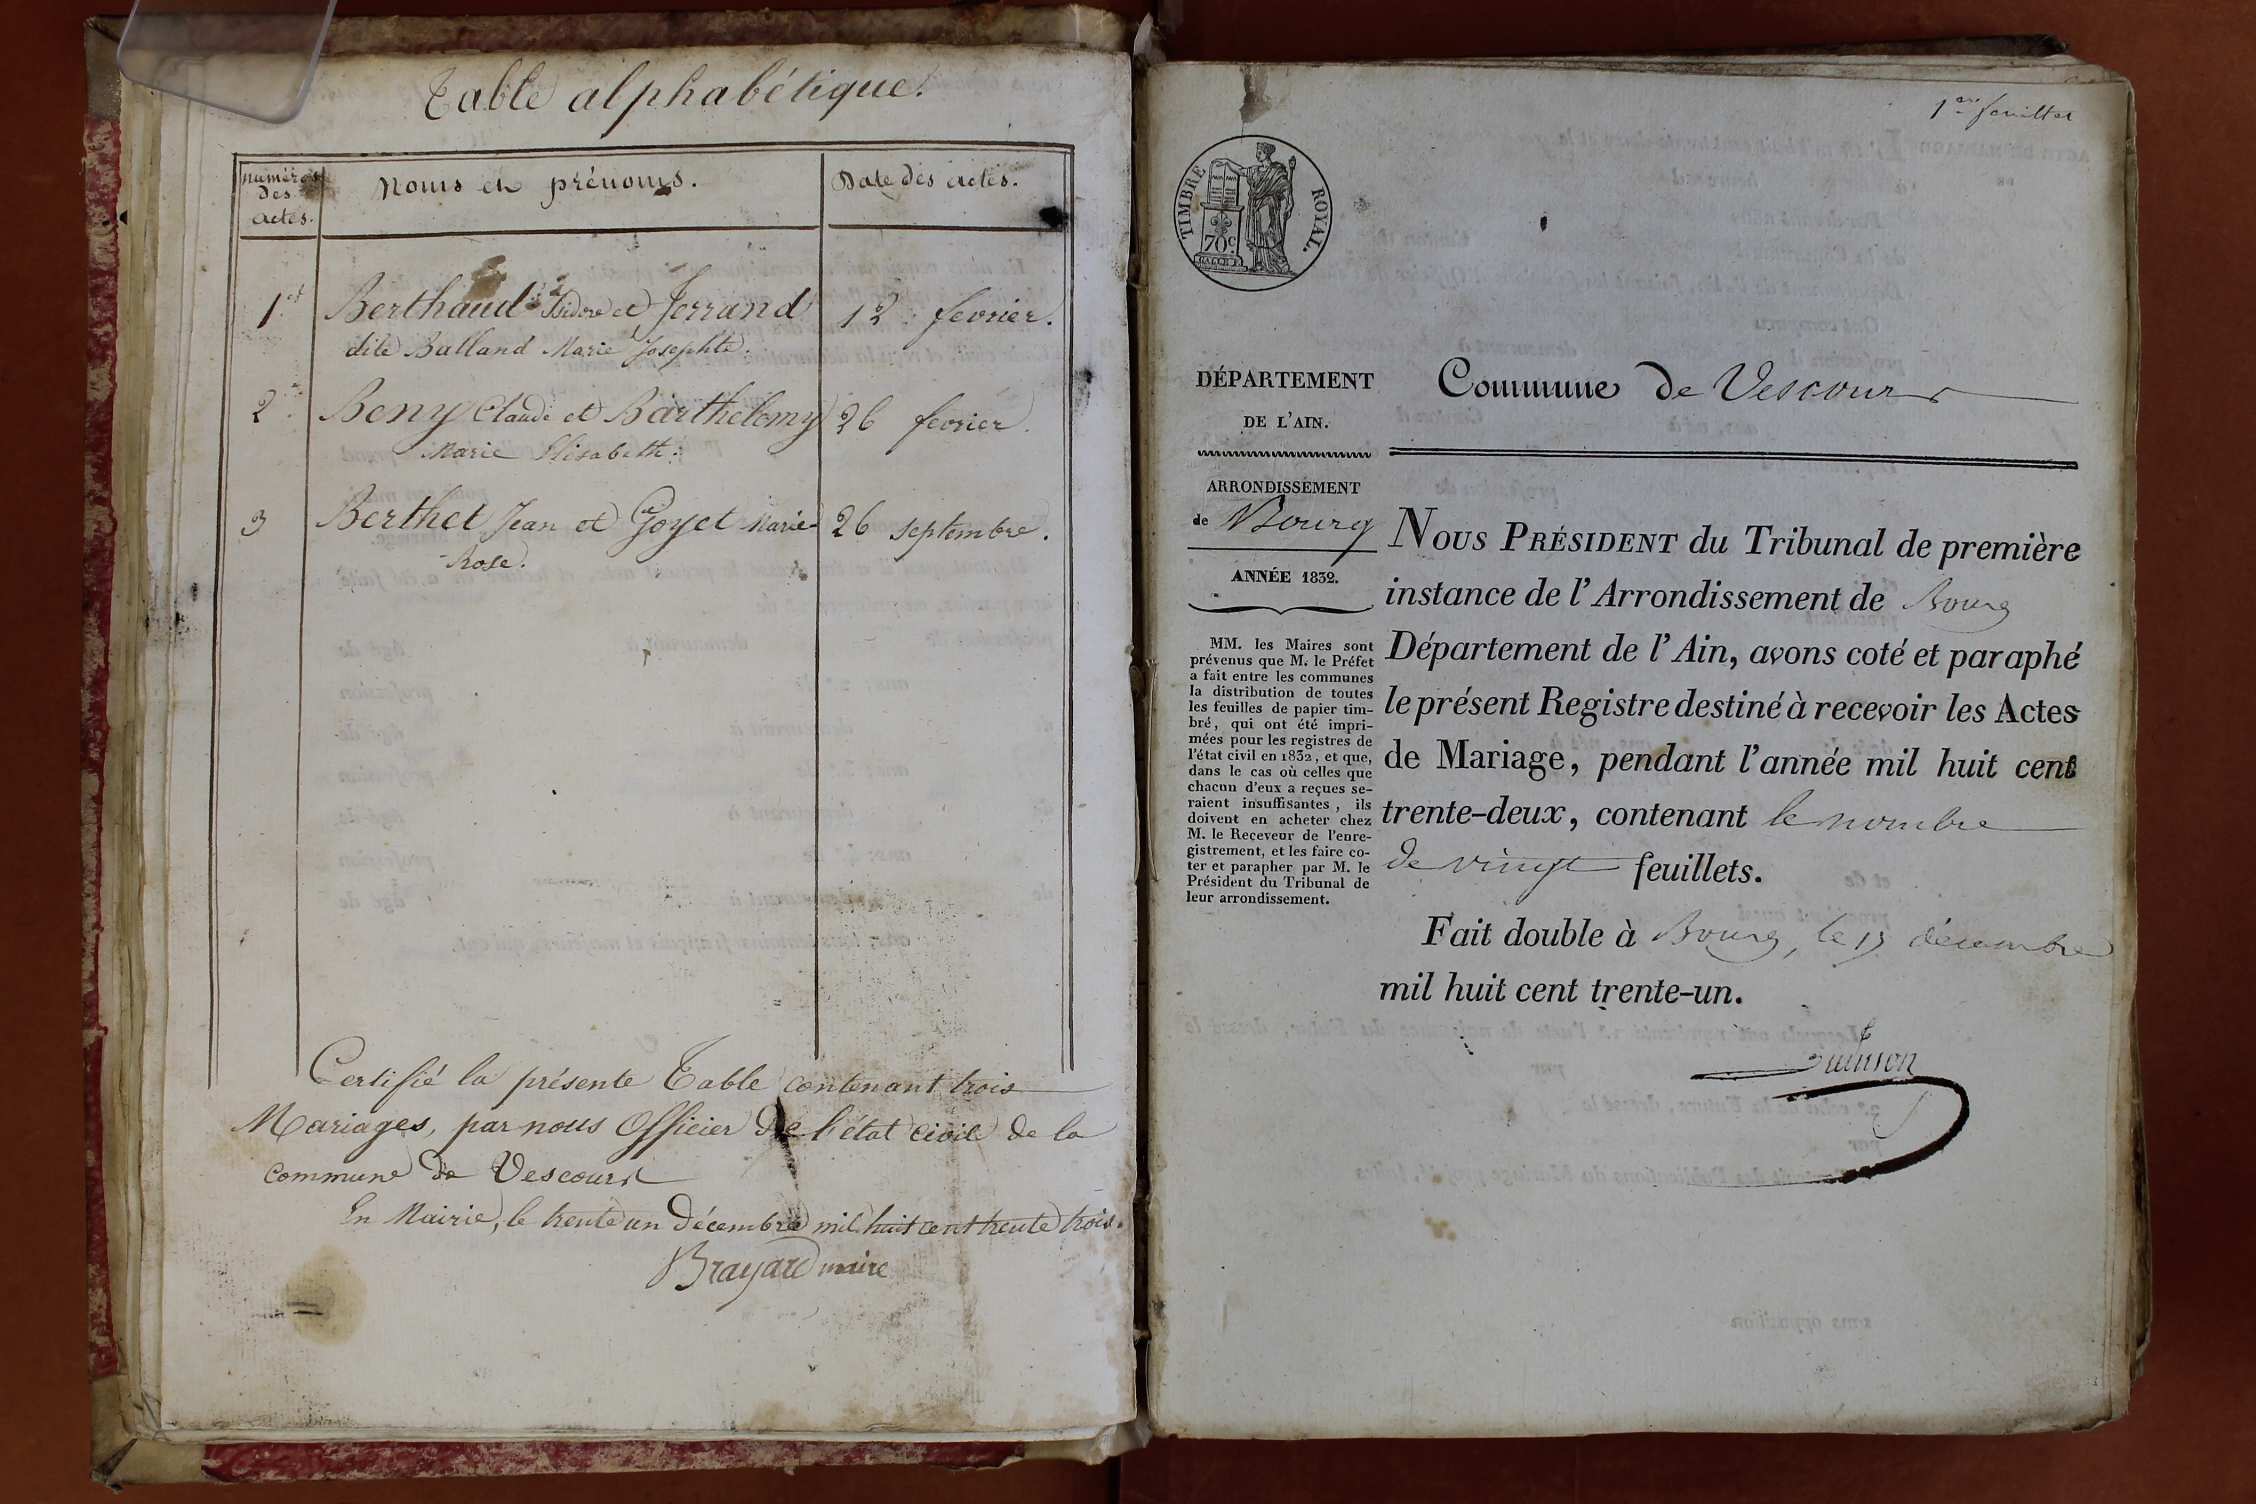 Table alphabétique.
numéros
des
actes.
Noms et prénoms.
Date des actes.
1er Berthaud Isidore et Ferrand 12 fevrier.
dite Balland Marie Josephte.
2 Beny Claude et Barthelemy 26 fevrier.
Marie Elisabeth.
3 Berthet Jean et Goyet Marie 26 septembre.
Rose.
Certifié la présente Table contenant trois
Mariages, par nous Officier de l'état civil de la
commune de Vescours
En Mairie, le trente un décembre mil huit cent trente trois.
Brayard maire
1er feuillet
TIMBRE ROYAL.
70c
DÉPARTEMENT
DE L'AIN.
ARRONDISSEMENT
de Bourg
ANNÉE 1832.
MM. les Maires sont
prévenus que M. le Préfet
a fait entre les communes
la distribution de toutes
les feuilles de papier tim-
bré, qui ont été impri-
mées pour les registres de
l'état civil en 1832, et que,
dans le cas où celles que
chacun d'eux a reçues se-
raient insuffisantes, ils
doivent en acheter chez
M. le Receveur de l'enre-
gistrement, et les faire co-
ter et parapher par M. le
Président du Tribunal de
leur arrondissement.
Commune de Vescours
NOUS PRÉSIDENT du Tribunal de première
instance de l'Arrondissement de Bourg
Département de l'Ain, avons coté et paraphé
le présent Registre destiné à recevoir les Actes
de Mariage, pendant l'année mil huit cent
trente-deux, contenant le nombre
de vingt feuillets.
Fait double à Bourg, le 15 décembre
mil huit cent trente-un.